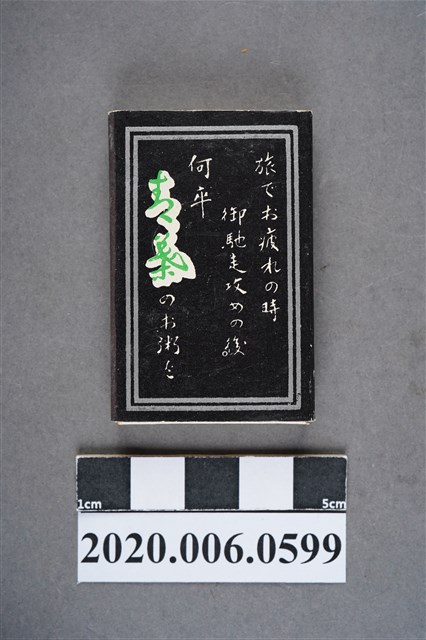 旅でお疲れの時
御馳走攻めの後。
何卒
青葉
のお粥を
1cm
5cm
2020.006.0599